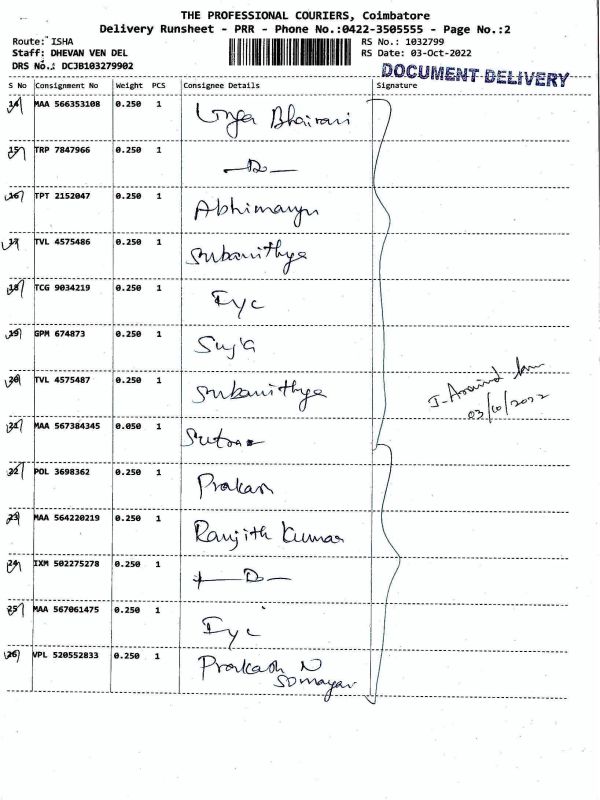 THE PROFESSIONAL COURIERS, Coimbatore
Delivery Runsheet - PRR - Phone No.:0422-3505555 - Page No.:2
Route: ISHA RS No.: 1032799
Staff: DHEVAN VEN DEL RS Date: 03-Oct-2022
DRS No.: DCJB103279902
DOCUMENT DELIVERY
S No Consignment No Weight PCS Consignee Details Signature
14 MAA 566353108 0.250 1 Linga Bhairavi
15 TRP 7847966 0.250 1 —D—
16 TPT 2152047 0.250 1 Abhimanyu
17 TVL 4575486 0.250 1 Subanithya
18 TCG 9034219 0.250 1 Iyc
19 GPM 674873 0.250 1
20 TVL 4575487 0.250 1 Subanithya
21 MAA 567384345 0.050 1
22 POL 3698362 0.250 1 Prakash
23 MAA 564220219 0.250 1 Ranjith Kumar
24 IXM 502275278 0.250 1 —D—
25 MAA 567061475 0.250 1 Iyc
26 VPL 520552833 0.250 1 Prakash N
Somayar
03/10/2022